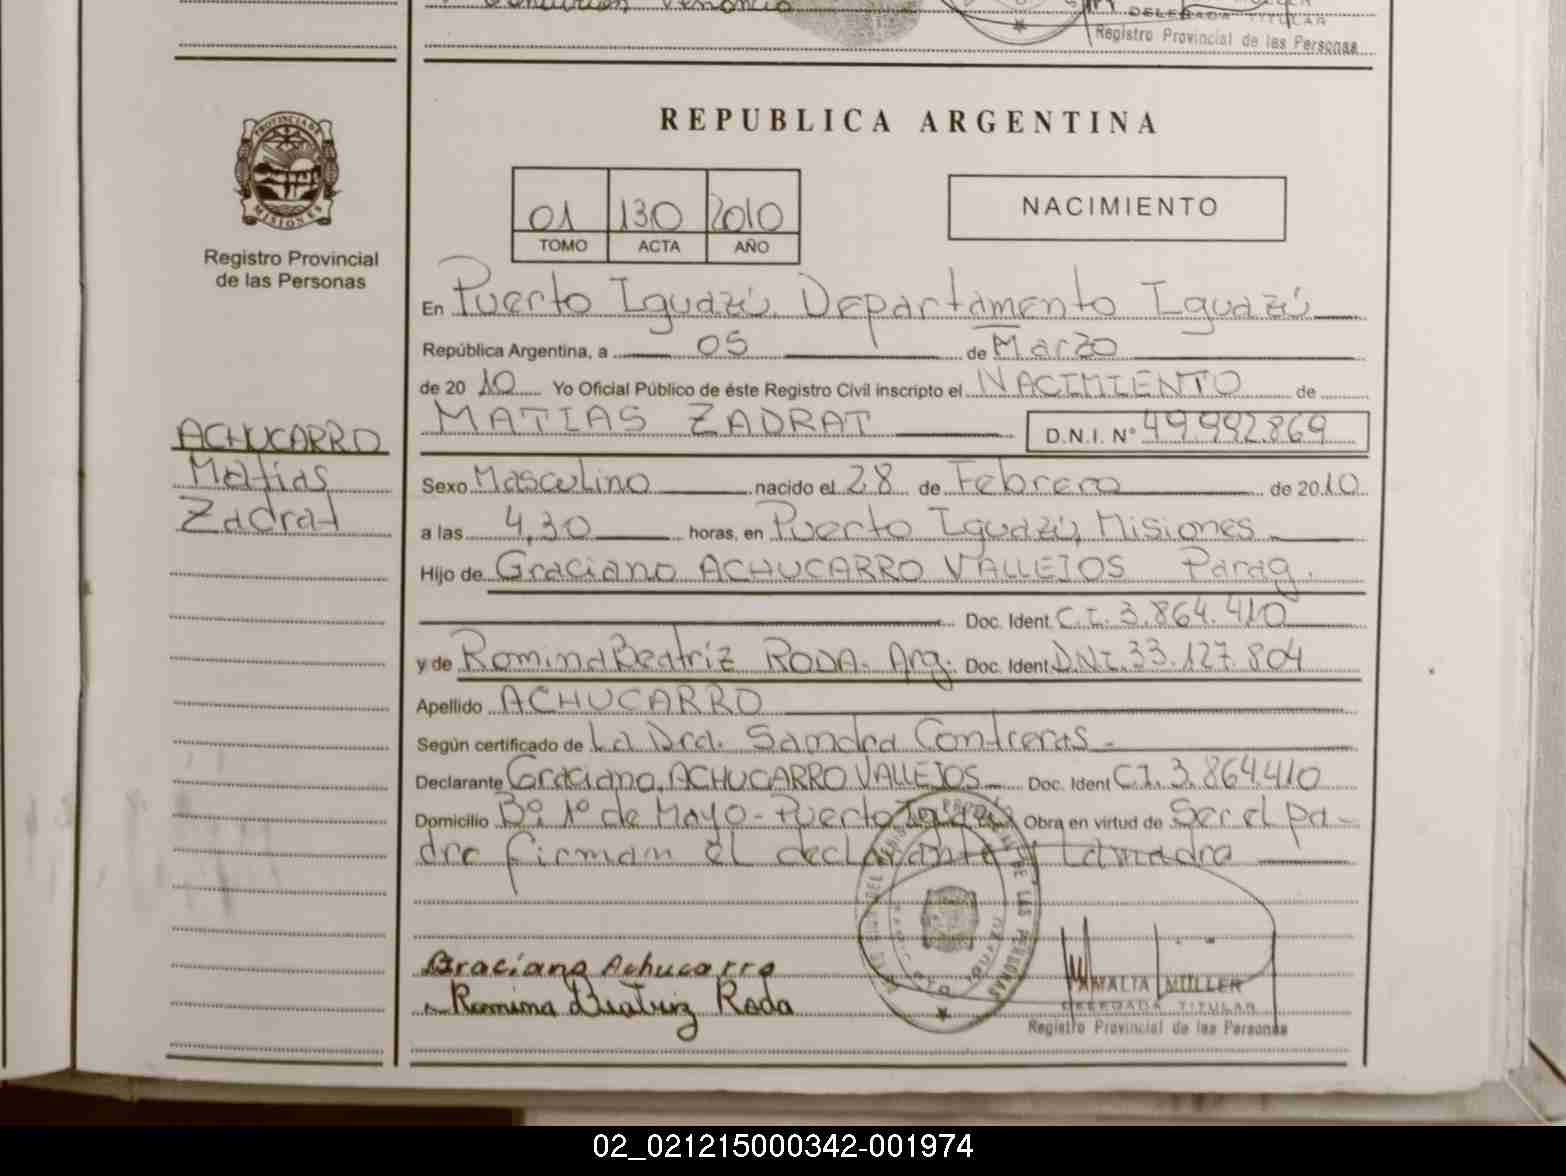 DELEGADA TITULAR
Registro Provincial de las Personas
PROVINCIA DE
MISIONES
Registro Provincial
de las Personas
ACHUCARRO
Matias
Zadrat
REPUBLICA ARGENTINA
01 130 2010
TOMO ACTA AÑO
NACIMIENTO
En Puerto Iguazú, Departamento Iguazú
República Argentina, a 05 de Marzo
de 2010 Yo Oficial Público de éste Registro Civil inscripto el NACIMIENTO de
MATIAS ZADRAT D.N.I. N° 49.992.869
Sexo Masculino nacido el 28 de Febrero de 2010
a las 4,30 horas, en Puerto Iguazú, Misiones
Hijo de Graciano ACHUCARRO VALLEJOS Parag.
Doc. Ident. C.I. 3.864.410
y de Romina Beatriz RODA. Arg. Doc. Ident. DNI.33.127.804
Apellido ACHUCARRO
Según certificado de La Dra. Sandra Contreras
Declarante Graciano, ACHUCARRO VALLEJOS Doc. Ident C.I.3.864.410
Domicilio B° 1° de Mayo - Puerto Iguazú Obra en virtud de Ser el pa-
dre firman el declarante y la madre
Graciano Achucarro
Romina Beatriz Roda
DE LAS PERSONAS
AMALIA MÜLLER
DELEGADA TITULAR
Registro Provincial de las Personas
02_021215000342-001974